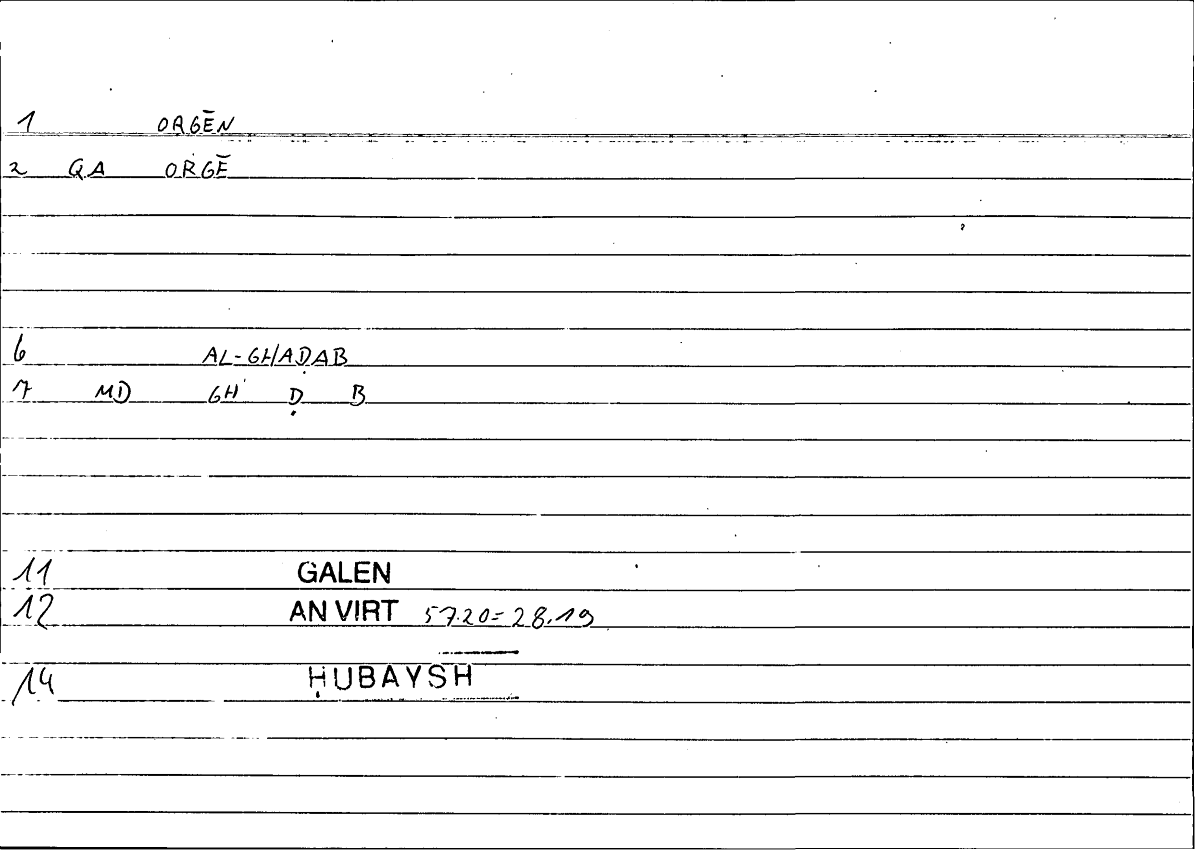 1 ORGĒN
2 QA ORGĒ
6 AL-GHAḌAB
7 MD GH Ḍ B
11 GALEN
12 AN VIRT 57.20=28.19
14 ḤUBAYSH